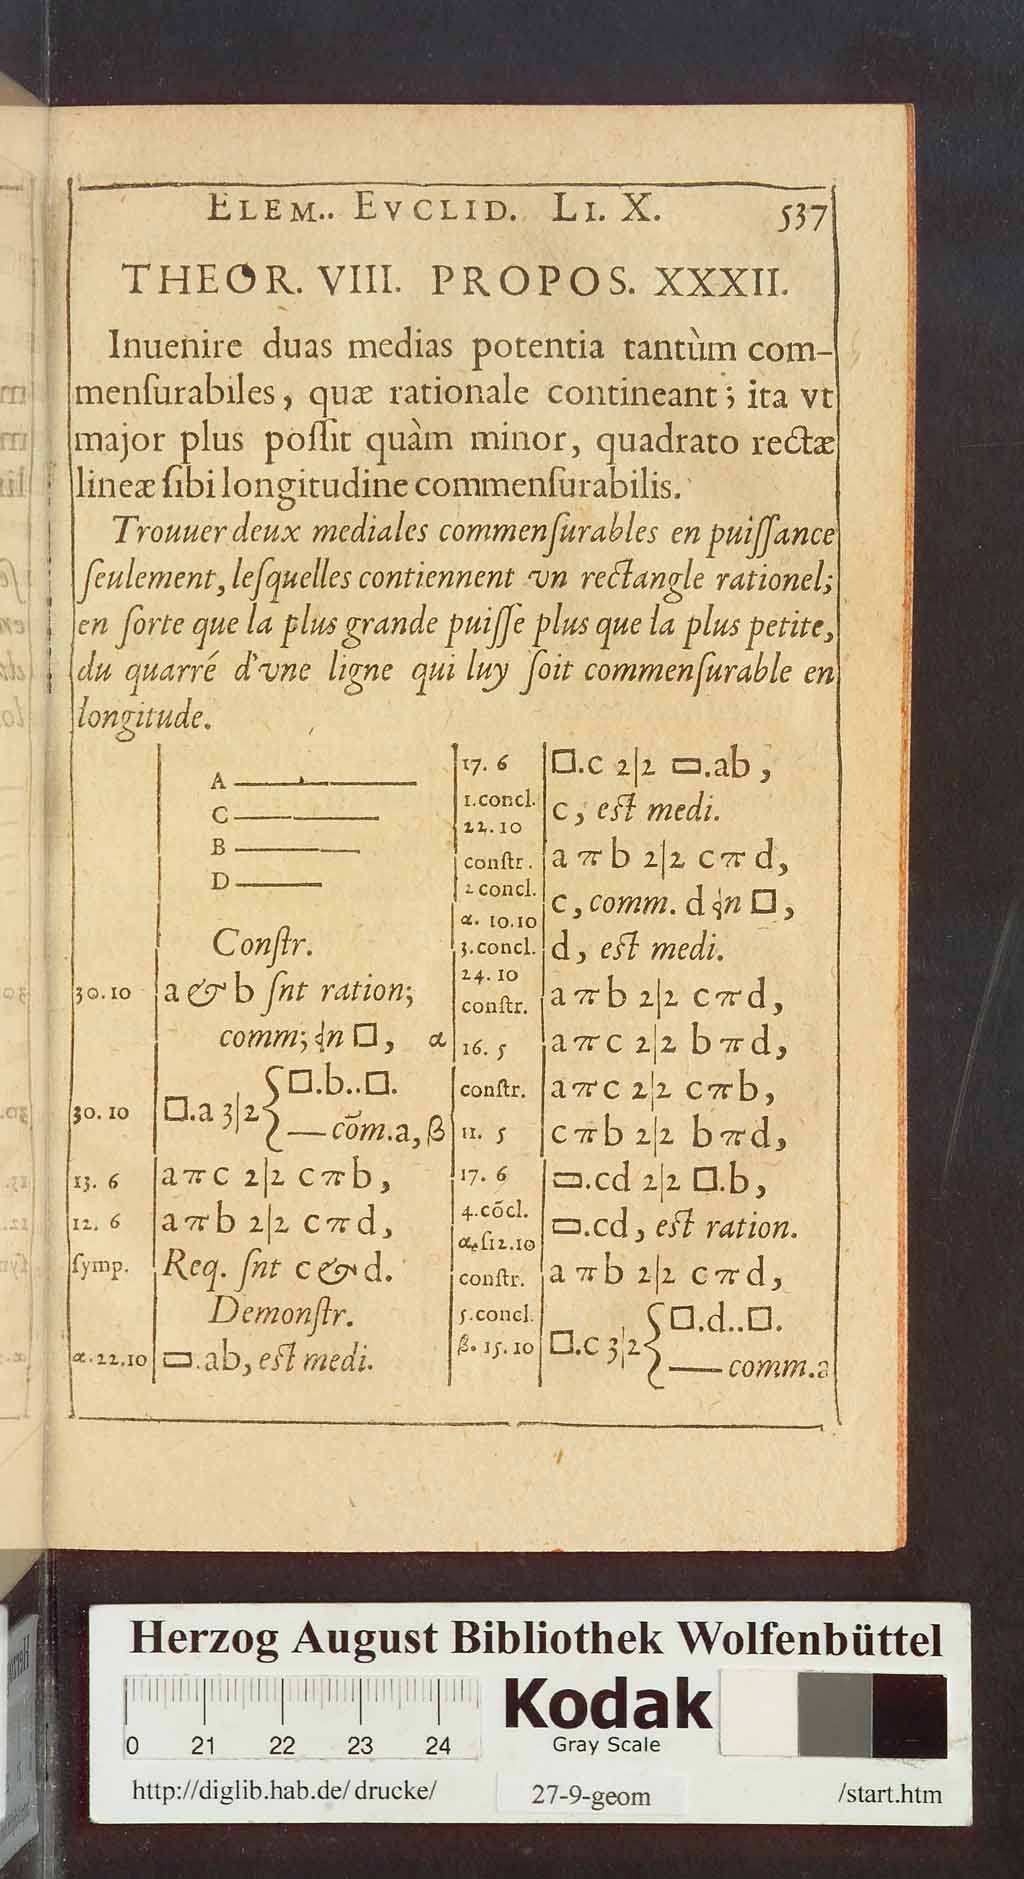 ELEM.. EVCLID. LI. X. 537
THEOR. VIII. PROPOS. XXXII.
Inuenire duas medias potentia tantùm com-
menſurabiles, quæ rationale contineant; ita vt
major plus poſſit quàm minor, quadrato rectæ
lineæ ſibi longitudine commenſurabilis.
Trouuer deux mediales commenſurables en puiſſance
ſeulement, leſquelles contiennent vn rectangle rationel;
en ſorte que la plus grande puiſſe plus que la plus petite,
du quarré d'vne ligne qui luy ſoit commenſurable en
longitude.
A
C
B
D
Conſtr.
30.10 a & b ſnt ration;
comm; in □, α
30.10 □.a 3|2 { □.b..□.
— cōm.a, β
13. 6 a π c 2|2 c π b,
12. 6 a π b 2|2 c π d,
ſymp. Req. ſnt c & d.
Demonſtr.
α.22.10 ▭.ab, eſt medi.
17. 6 □.c 2|2 ▭.ab,
1.concl.
22.10 c, eſt medi.
conſtr. a π b 2|2 c π d,
2 concl.
α. 10.10 c, comm. d in □,
3.concl. d, eſt medi.
24.10
conſtr. a π b 2|2 c π d,
16. 5 a π c 2|2 b π d,
conſtr. a π c 2|2 c π b,
11. 5 c π b 2|2 b π d,
17. 6 ▭.cd 2|2 □.b,
4.cōcl.
α.ſ12.10 ▭.cd, eſt ration.
conſtr. a π b 2|2 c π d,
5.concl.
β. 15.10 □.c 3|2 { □.d..□.
— comm.a
Herzog August Bibliothek Wolfenbüttel
0 21 22 23 24
Kodak
Gray Scale
http://diglib.hab.de/drucke/ 27-9-geom /start.htm